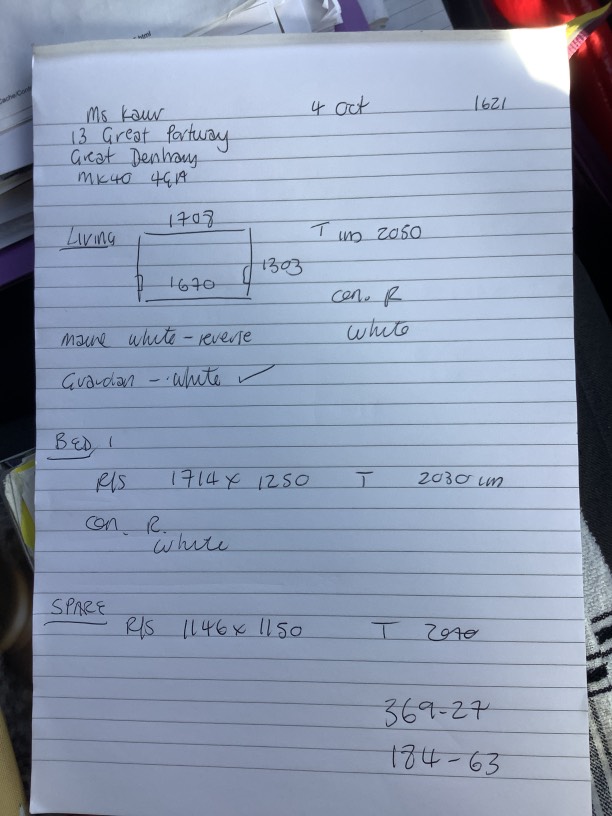 Ms Kaur 4 Oct 1621
13 Great Portway
Great Denham
MK40 4GA
Living 1708 T im 2050
1303
1670 con. R
white
maine white - reverse
Guardian - white ✓
BED 1
R/S 1714 x 1250 T 2030 im
con. R.
white
SPARE
R/S 1146 x 1150 T
369-27
184-63